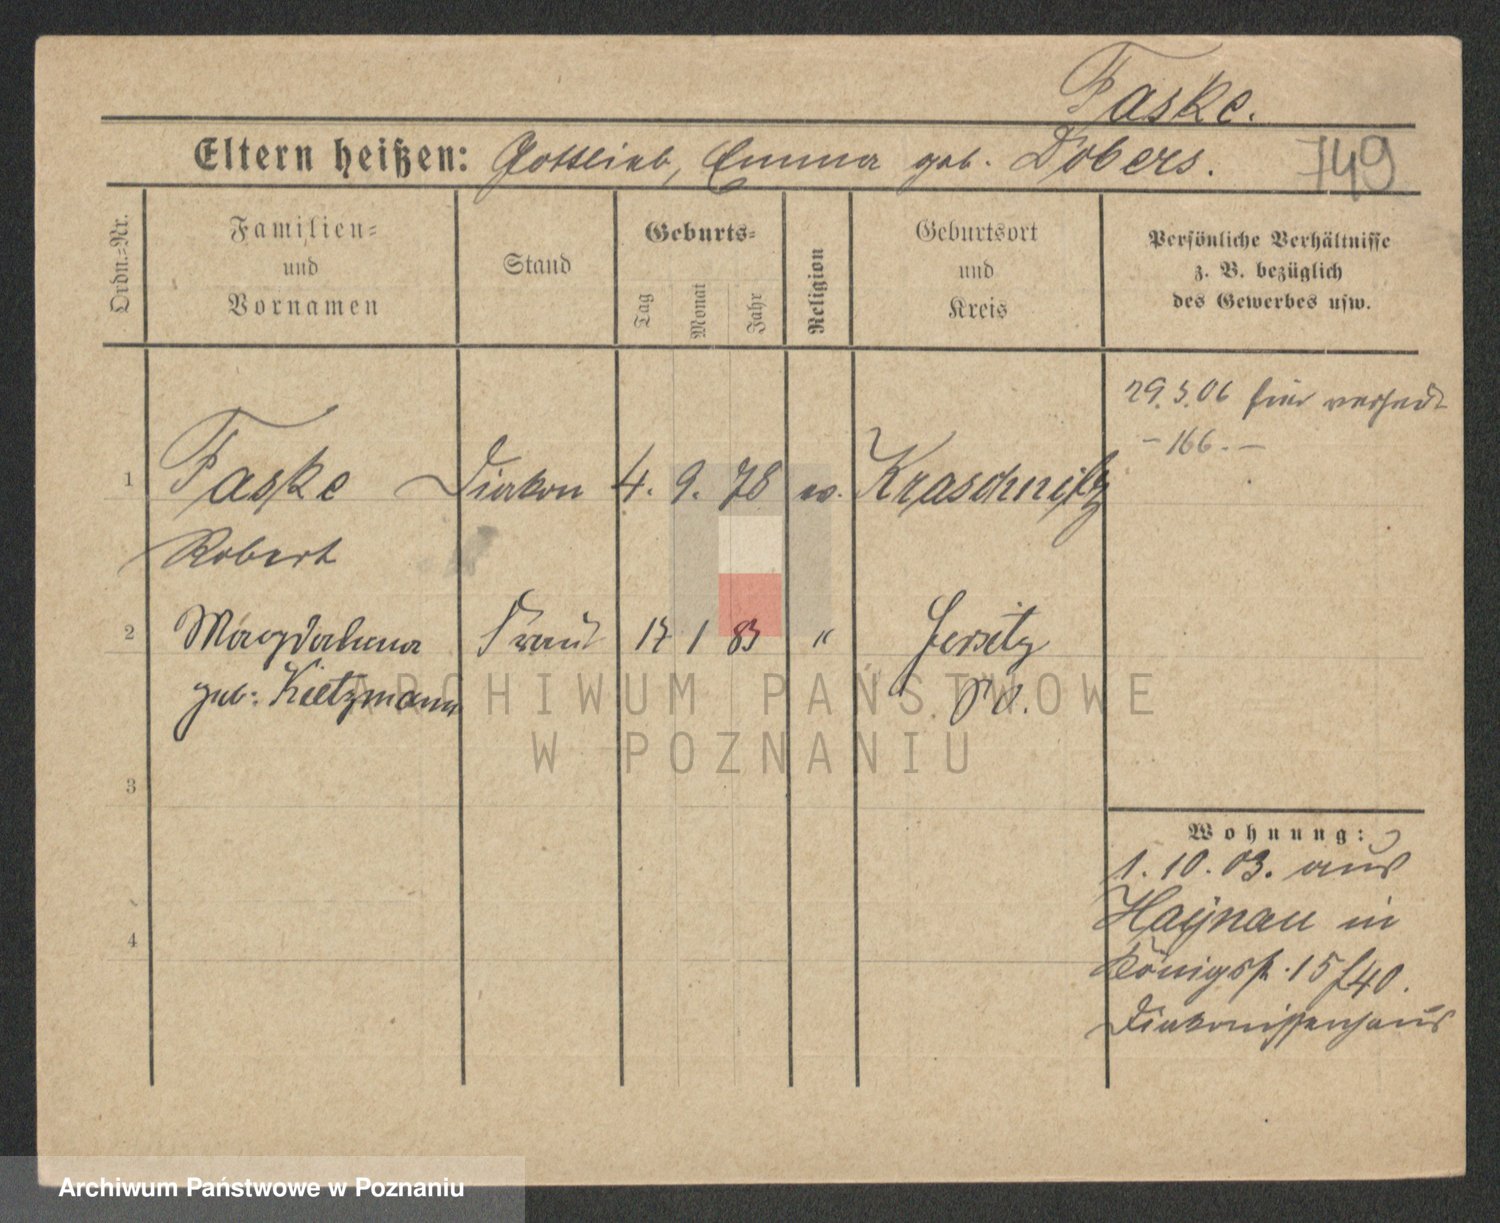 Taske.
Eltern heißen: Gottlieb, Emma geb. Dobers.
749
Ordn.-Nr.
Familien-
und
Vornamen
Stand
Geburts-
Tag
Monat
Jahr
Religion
Geburtsort
und
Kreis
Persönliche Verhältnisse
z. B. bezüglich
des Gewerbes usw.
29. 3. 06 hier
- 166. -
1 Taske Diakon 4. 9. 78 ev. Kraschnitz
Robert
2 Magdalena 17 1 83 " Jersitz
geb: Kietzmann
ARCHIWUM PAŃSTWOWE
W POZNANIU
3
4
Wohnung:
1. 10. 03. aus
Haynau in
Königspl. 15
Diakonissenhaus
Archiwum Państwowe w Poznaniu